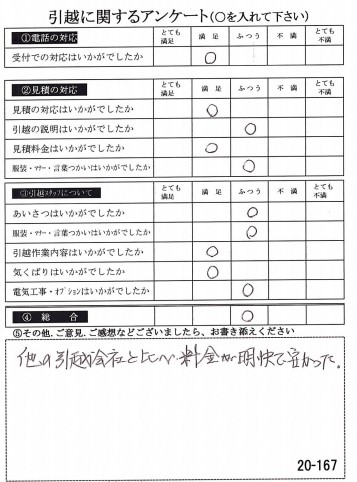 引越に関するアンケート(○を入れて下さい)
①電話の対応 とても満足 満足 ふつう 不満 とても不満
受付での対応はいかがでしたか ○
②見積の対応 とても満足 満足 ふつう 不満 とても不満
見積の対応はいかがでしたか ○
引越の説明はいかがでしたか ○
見積料金はいかがでしたか ○
服装・マナー・言葉つかいはいかがでしたか ○
③引越スタッフについて とても満足 満足 ふつう 不満 とても不満
あいさつはいかがでしたか ○
服装・マナー・言葉つかいはいかがでしたか ○
引越作業内容はいかがでしたか ○
気くばりはいかがでしたか ○
電気工事・オプションはいかがでしたか ○
④総合 ○
⑤その他、ご意見、ご感想などございましたら、お書き添えください
他の引越会社と比べ料金が明快で安かった。
20-167